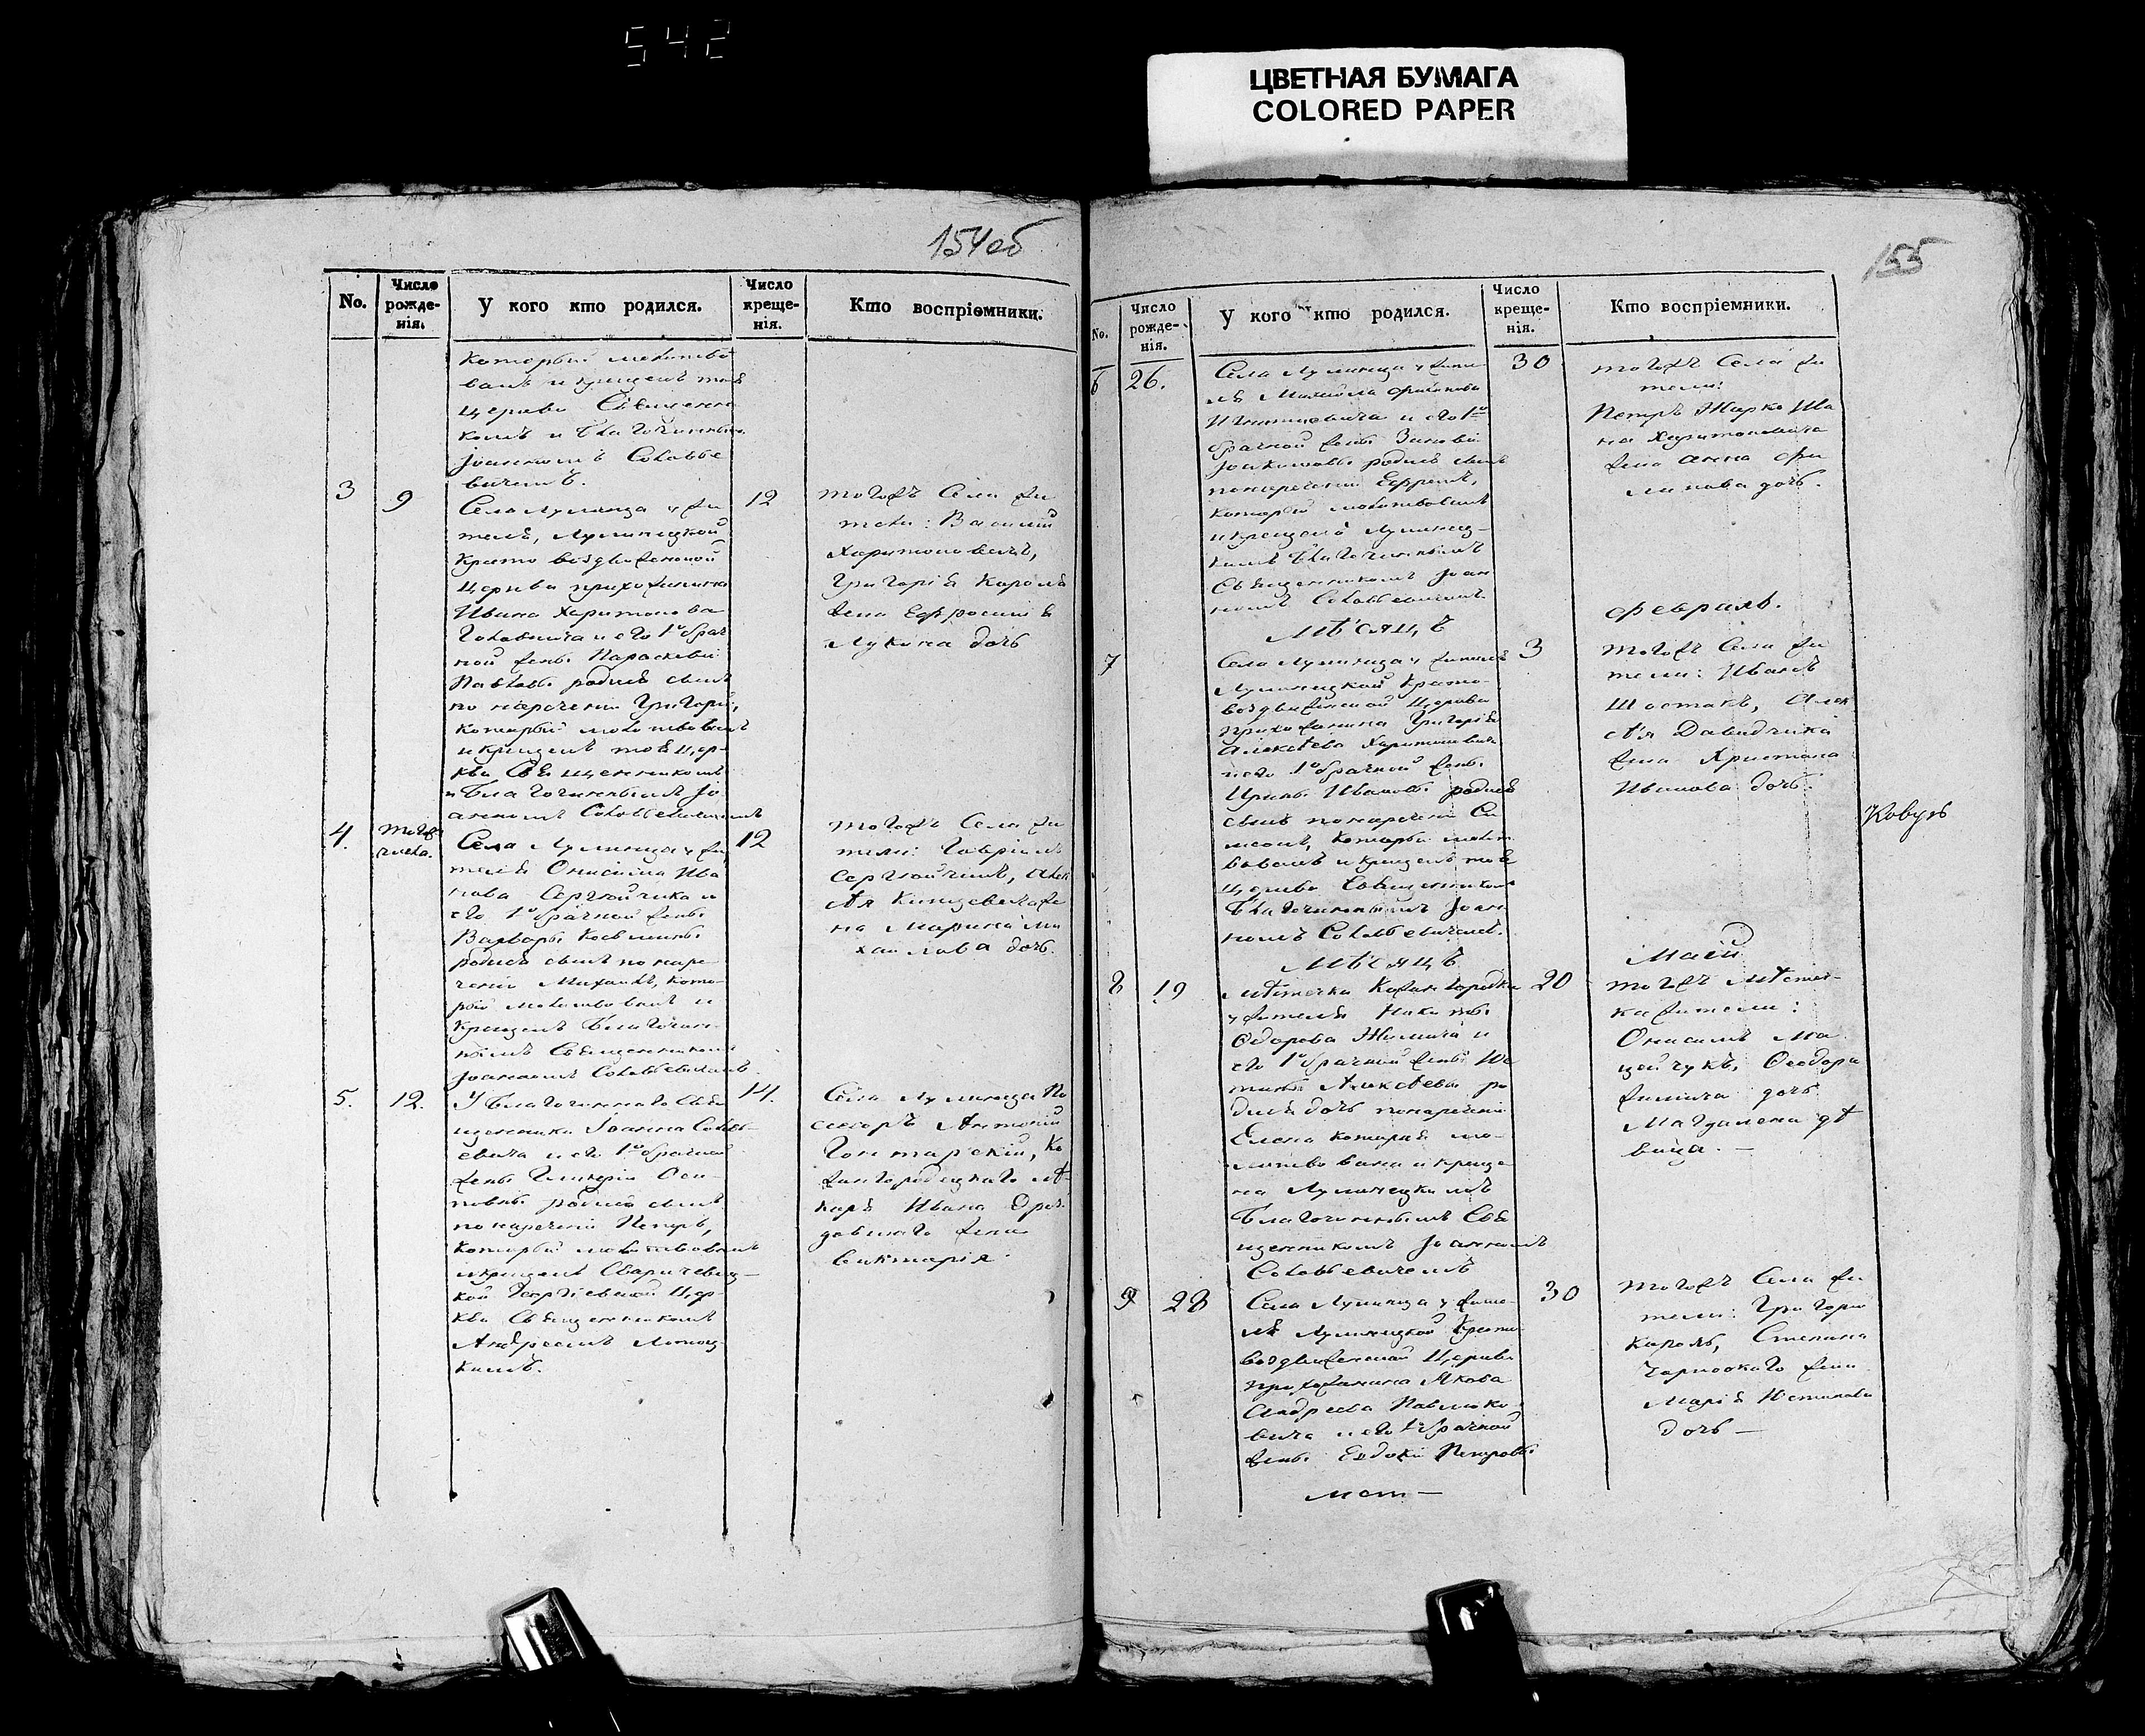 542
ЦВЕТНАЯ БУМАГА
COLORED PAPER
154об
No.
Число рожде-нія.
У кого кто родился.
Число креще-нія.
Кто воспріемники.
который молитво
ванъ и крещенъ тоя
церкви Священни
комъ и Благочиннымъ
Іоанномъ Соловье
вичемъ.
3
9
Села Лунинца у жи
теля, Лунинецкой
Кресто воздвиженской
церкви прихожанина
Ивана Харитонова
и его 1о брач
ной жены Параскевіи
Павловы родися сынъ
по нареченіи Григорій,
который молитвованъ
и крещенъ тоя цер-
кви Священникомъ
и Благочиннымъ Іо
анномъ Соловьевичемъ
12
тогожъ Села жи
тели: Василій
Харитоновичъ,
Григорія Кароля
жена Ефросинія
Лукина дочь
4.
тогож
числа.
Села Лунинца у жи
теля Онисима Ива
нова Сергюйчика и
его 1о брачной жены
Варвары Косьмины
родися сынъ по наре
ченіи Михаилъ, кото-
рый молитвованъ и
крещенъ Благочин-
нымъ Священникомъ
Іоанномъ Соловьевичемъ.
12
тогожъ Села жи
тели: Гавріилъ
Сергюйчикъ, Алек
сѣя Кунцевича же
на Марина Ми
хаилова дочь.
5.
12.
У Благочиннаго Свя
щенника Іоанна Соловь-
евича и его 1о брачной
жены Гликеріи Оси-
повны родися сынъ
по нареченіи Петръ,
который молитвованъ
и крещенъ Сваричевиц-
кой Георгіевской цер-
кви Священникомъ
Андреемъ
14.
Села Лунинца По
сесоръ Антоній
Гонтарскій, Ко
жангородецкаго лѣ-
каря Ивана
жена
Викторія
155
No.
Число рожде-нія.
У кого кто родился.
Число креще-нія.
Кто воспріемники.
6
26.
Села Лунинца у жите-
ля Михаила
и его 1о
брачной жены Зиновіи
Іоакимовы родися сынъ
по нареченіи Ефремъ,
который молитвованъ
и крещенъ Лунинец-
кимъ Благочиннымъ
Священникомъ Іоан
номъ Соловьевичемъ.
30
тогожъ Села жи
тели:
Петръ Жарко Ива
на Харитоновича
жена Анна Фи
липова дочь.
Мѣсяцъ
Февраль.
7
Села Лунинца у жителя
Лунинецкой Кресто-
воздвиженской Церкви
прихожанина Григорія
Алексѣева Харитоновича
и его 1о брачной жены
Ирины Ивановы родися
сынъ по нареченіи Си
меонъ, который молит
вованъ и крещенъ тоя
церкви Священникомъ
Благочиннымъ Іоан
номъ Соловьевичемъ.
3
тогожъ Села жи
тели: Иванъ
Шостакъ, Алек
сѣя Давидчика
жена Христина
Иванова дочь.
Ковузь
Мѣсяцъ
Маій
8
19
Мѣстечка Кожангородка
у жителя Никиты
Ѳедорова Жилича и
его 1о брачной жены Юс
тины Алексѣевы ро
дися дочь по нареченіи
Елена которая мо-
литвована и креще
на Лунинецкимъ
Благочиннымъ Свя
щенникомъ Іоанномъ
Соловьевичемъ
20
тогожъ Мѣстеч-
ка жители:
Онисимъ Ма
цейчукъ, Ѳеодора
Жилича дочь
Магдалена дѣ
вица. —
9
28
Села Лунинца у жите-
ля Лунинецкой Кресто-
воздвиженской Церкви
прихожанина Якова
Андреева Павлюко-
вича и его 1о брачной
жены Евдокіи Петровы
30
тогожъ Села жи
тели: Григорій
Кароль, Степана
Чарноокаго жена
Марія Юстинова
дочь —